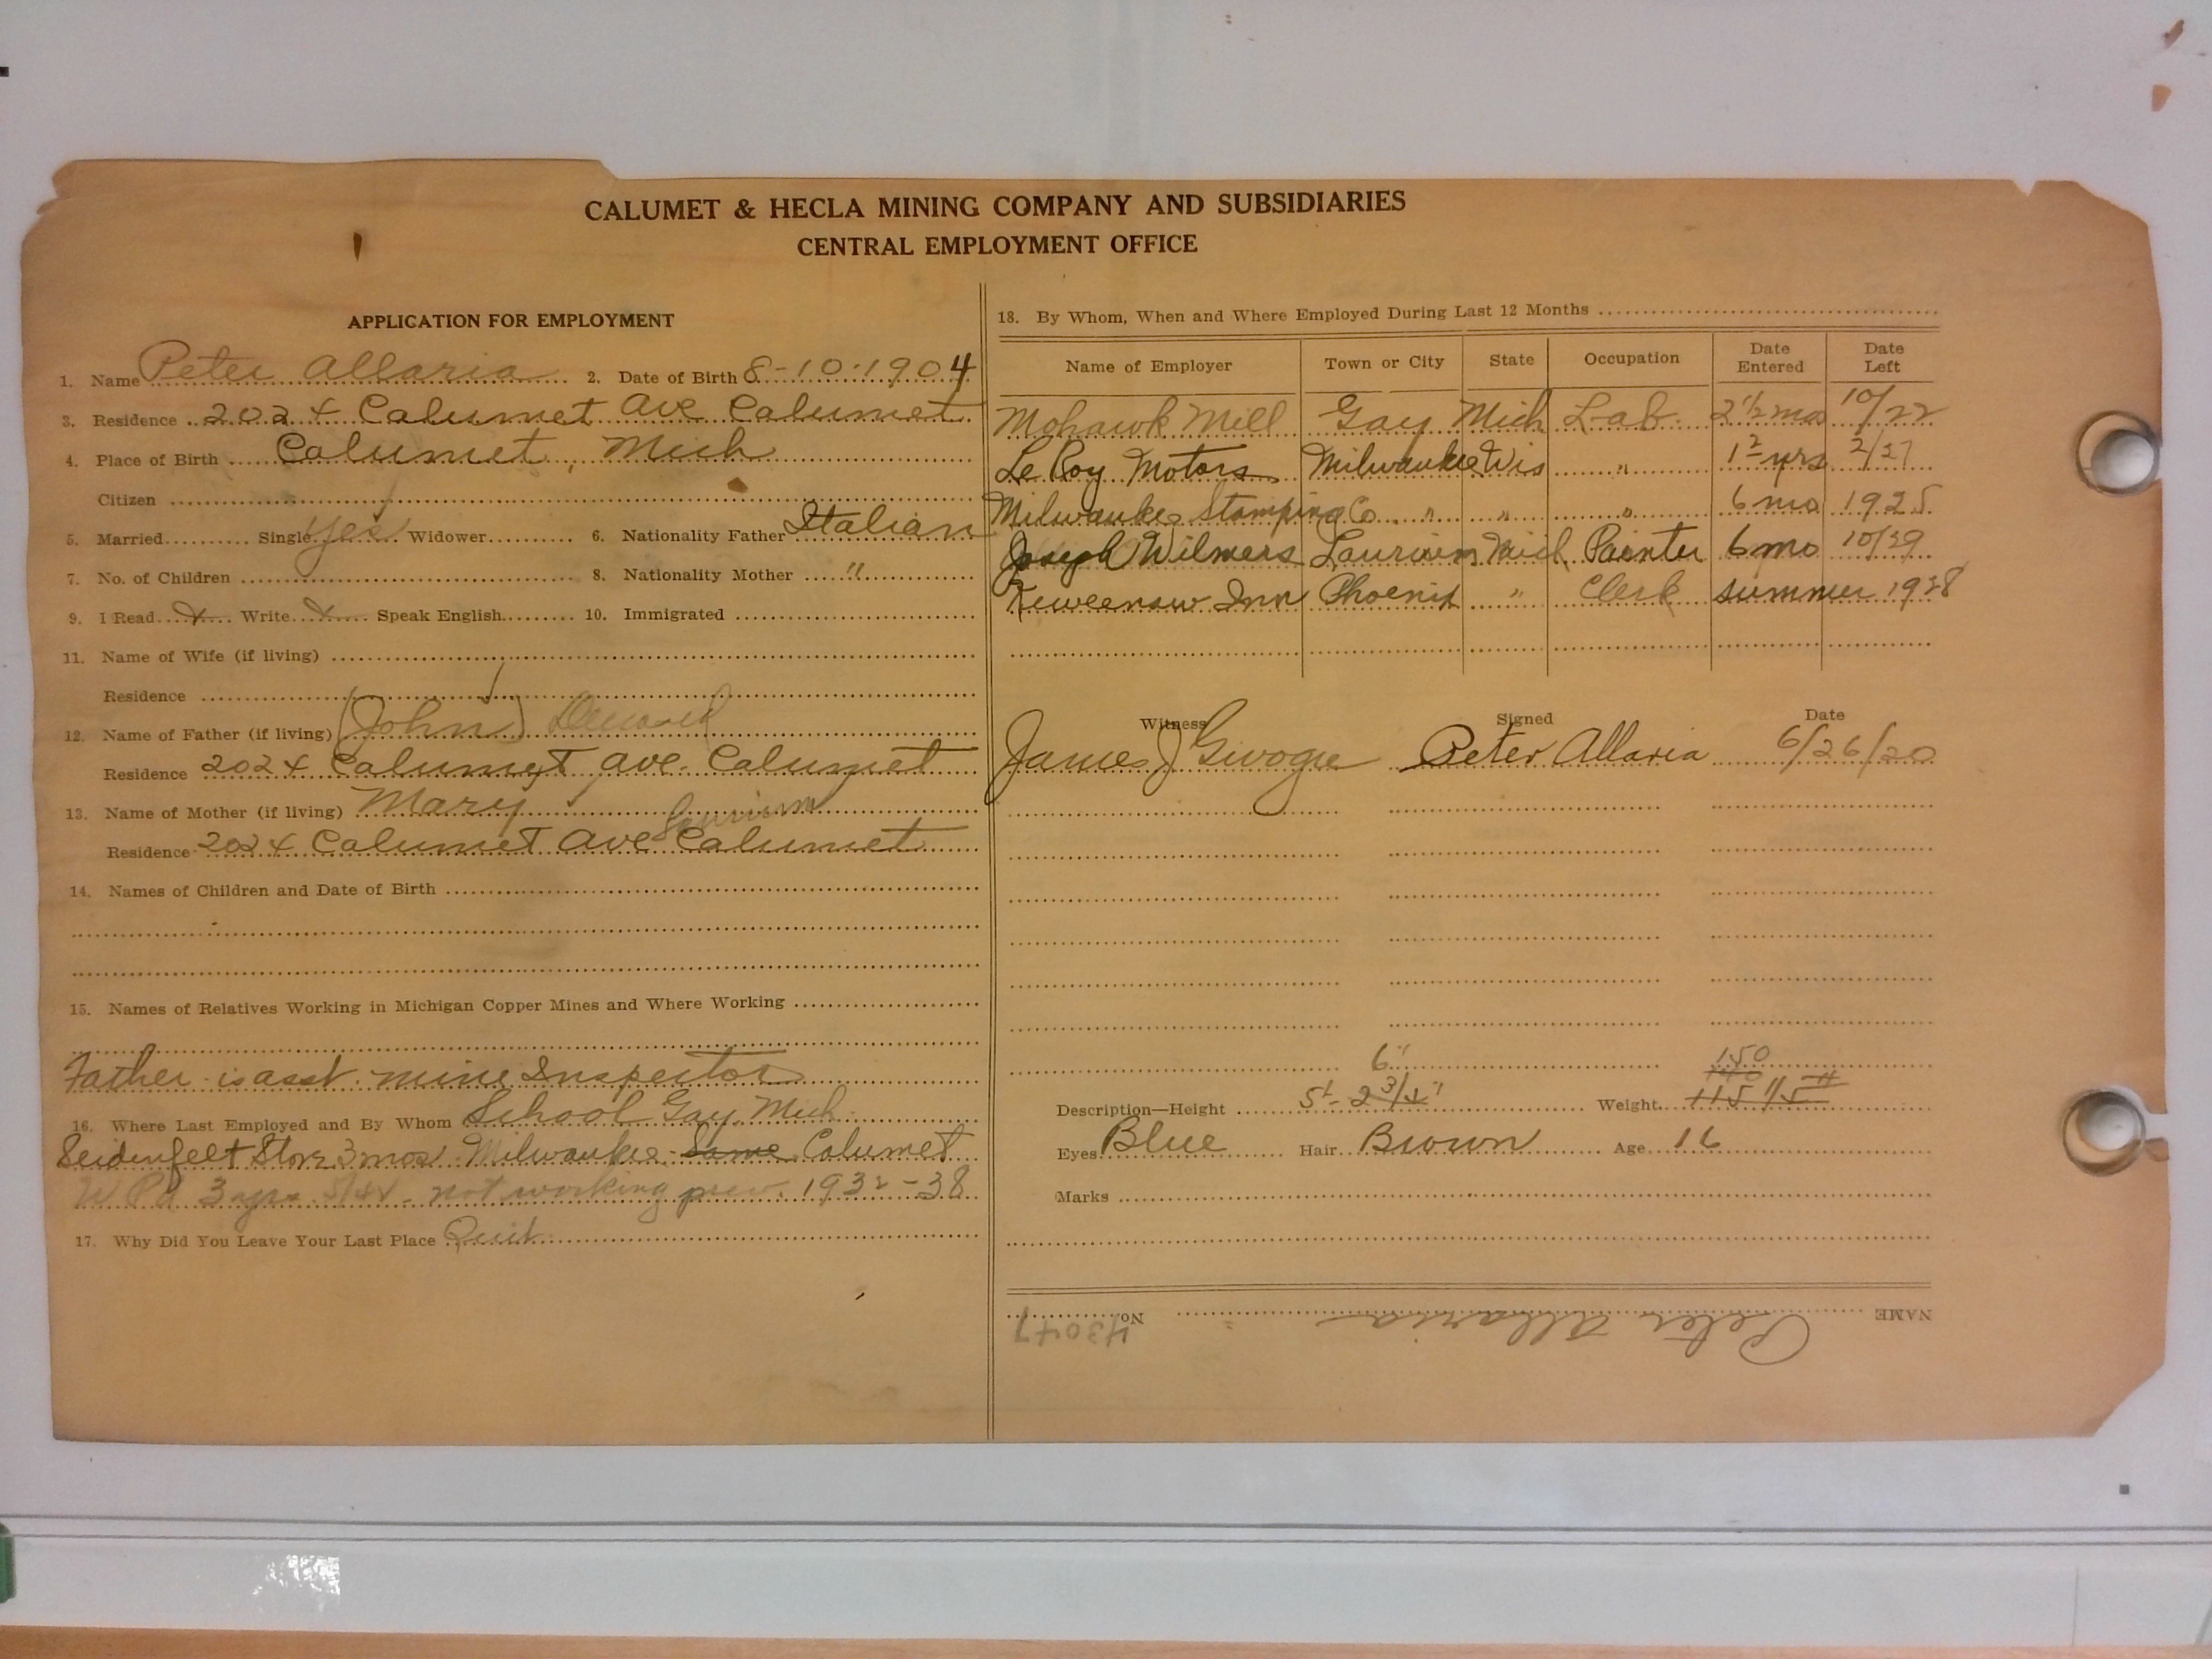 CALUMET & HECLA MINING COMPANY AND SUBSIDIARIES
CENTRAL EMPLOYMENT OFFICE
APPLICATION FOR EMPLOYMENT
1. Name Peter Allaria 2. Date of Birth 8-10-1904
3. Residence 2024 Calumet Ave Calumet
4. Place of Birth Calumet, Mich
Citizen
5. Married Single Yes Widower 6. Nationality Father Italian
7. No. of Children 8. Nationality Mother "
9. I Read x Write x Speak English 10. Immigrated
11. Name of Wife (if living)
Residence
12. Name of Father (if living) (John)
Residence 2024 Calumet Ave. Calumet
13. Name of Mother (if living) Mary
Laurium
Residence 2024 Calumet Ave Calumet
14. Names of Children and Date of Birth
15. Names of Relatives Working in Michigan Copper Mines and Where Working
Father is asst. mine Inspector
16. Where Last Employed and By Whom School Gay, Mich
Seidenfelt Store 3 mos Milwaukee Same Calumet
3 yrs not working prev. 1932-38
17. Why Did You Leave Your Last Place Quit
18. By Whom, When and Where Employed During Last 12 Months
Name of Employer Town or City State Occupation Date Entered Date Left
Mohawk Mill Gay Mich Lab. 2 1/2 mos 10/22
Le Roy Motors Milwaukee Wis " 1 2 yrs 2/27
Milwaukee Stamping Co. " " " 6 mo 1925
Joseph Wilmers Laurium Mich Painter 6 mo 10/29
Keweenaw Inn Phoenix " Clerk summer 1928
Witness Signed Date
James J Peter Allaria 6/26/20
6" 150
140
Description—Height 5'- 2 3/4" Weight 115 115 #
Eyes Blue Hair Brown Age 16
Marks
NAME Peter Allaria No. 43047